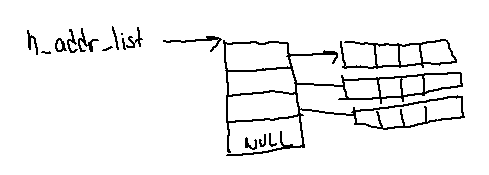 h_addr_list
NULL